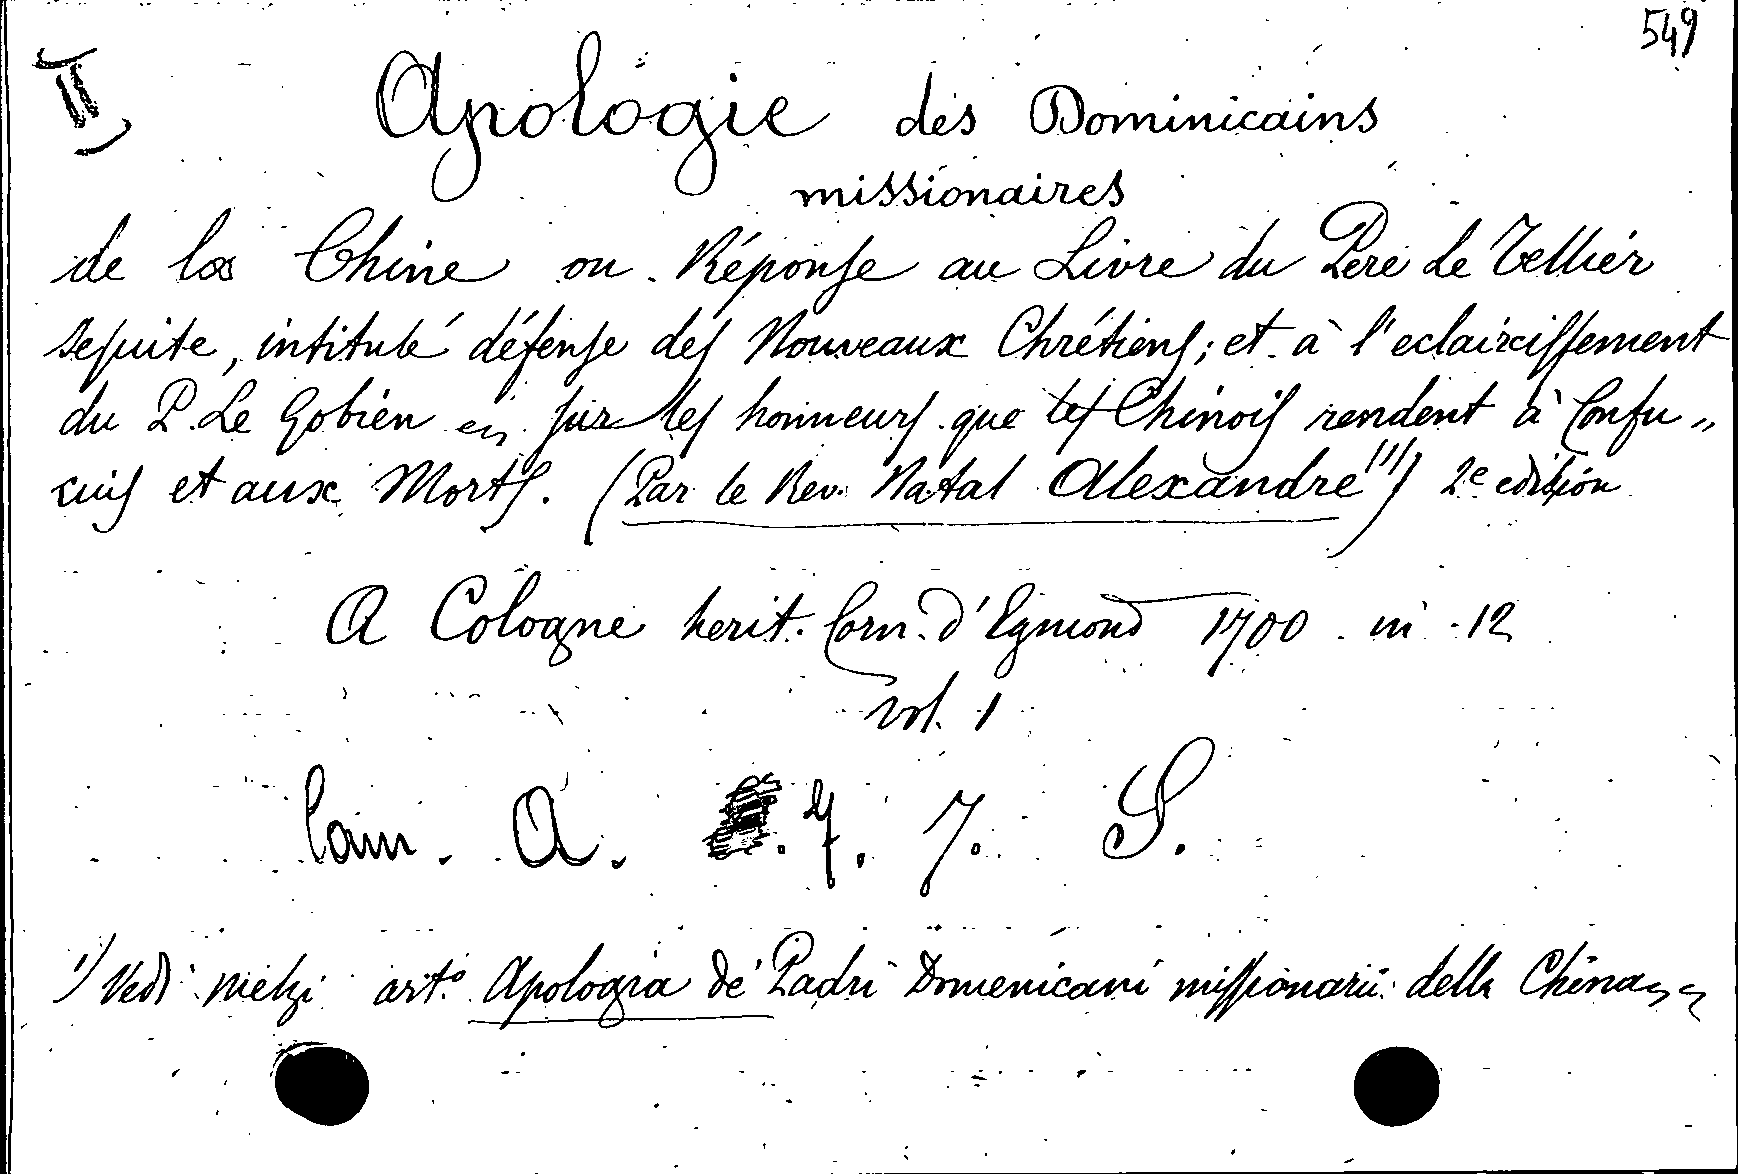 549
II
Apologie des Dominicains
missionaires
de la Chine ou Réponse au Livre du Pere le Tellier
Jesuite, intitulé défense des Nouveaux Chrétiens; et à l'eclaircissement
du P. Le Gobien sur les honneurs que les Chinois rendent à Confu„
cius et aux Morts. (Par le Rev. Natal Alexandre 1)) 2e edition
A Cologne herit. Corn. d'Egmond 1700 in 12
vol. 1
Cam. A. 4. 7. S.
1) Vedi Melzi art.o Apologia de' Padri Domenicani missionarii della China